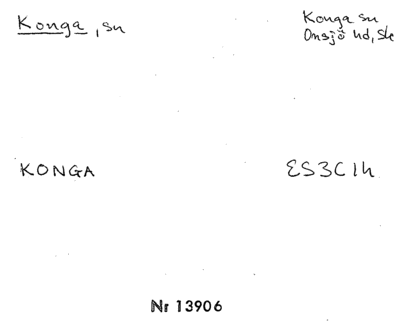 Konga, sn
Konga sn
Onsjö hd, Sk
KONGA
ES3C1h
Nr 13906